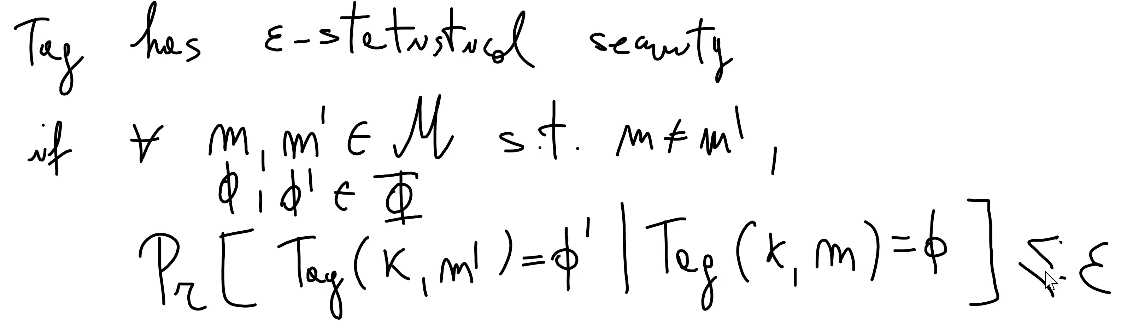 Tag has ε-statistical security
if ∀ m, m' ∈ M s.t. m ≠ m',
ϕ, ϕ' ∈ Φ
Pr [ Tag(K, m') = ϕ' | Tag(K, m) = ϕ ] ≤ ε